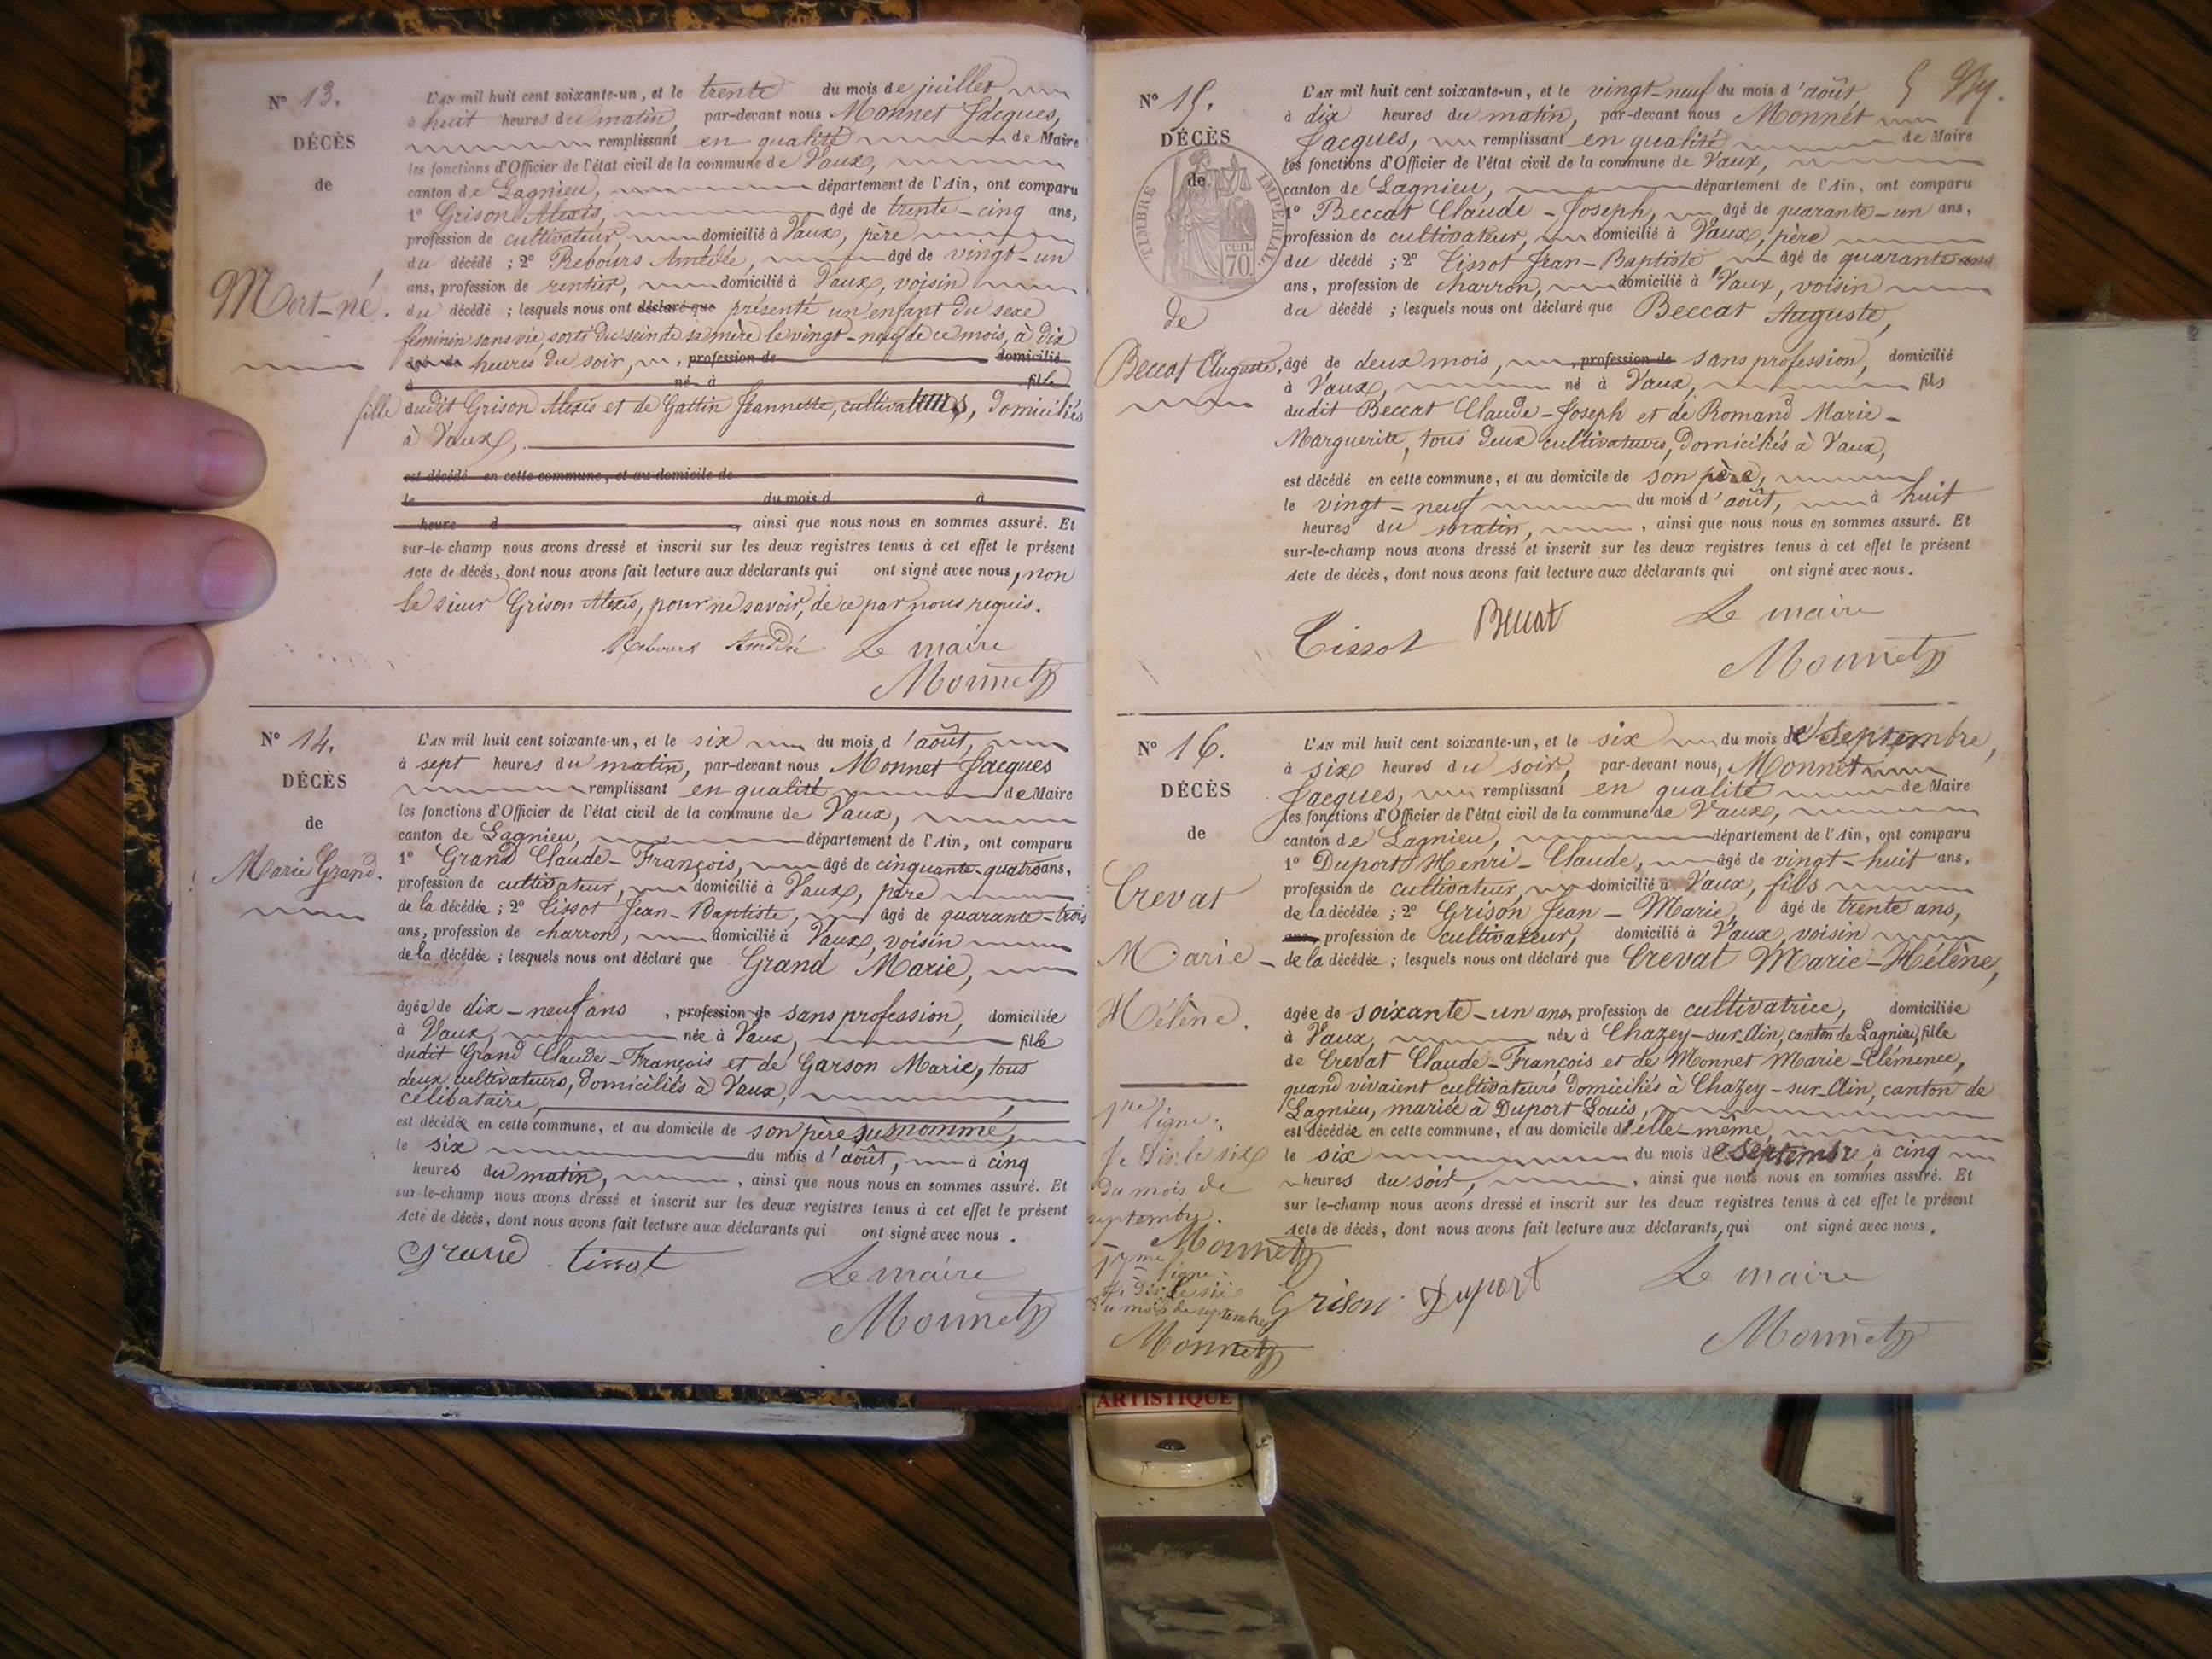 N° 13.
DÉCÈS
de
Mort-né.
L'AN mil huit cent soixante-un, et le trente du mois de juillet
à huit heures du matin, par-devant nous Monnet Jacques,
remplissant en qualité de Maire
les fonctions d'Officier de l'état civil de la commune de Vaux,
canton de Lagnieu, département de l'Ain, ont comparu
1° Grison Alexis, âgé de trente-cinq ans,
profession de cultivateur, domicilié à Vaux, père
du décédé ; 2° Rebours Amédée, âgé de vingt-un
ans, profession de rentier, domicilié à Vaux, voisin
du décédé ; lesquels nous ont déclaré que présenté un enfant du sexe
féminin sans vie, sorti du sein de sa mère le vingt-neuf de ce mois, à dix
âgé de heures du soir, profession de domicilié
à né à fils
fille dudit Grison Alexis et de Gattin Jeannette, cultivateurs, domiciliés
à Vaux,
est décédé en cette commune, et au domicile de
le du mois d à
heure d , ainsi que nous nous en sommes assuré. Et
sur-le-champ nous avons dressé et inscrit sur les deux registres tenus à cet effet le présent
Acte de décès, dont nous avons fait lecture aux déclarants qui ont signé avec nous, non
le sieur Grison Alexis, pour ne savoir, de ce par nous requis.
Rebours Amédée Le maire
Monnet
N° 14.
DÉCÈS
de
Marie Grand.
L'AN mil huit cent soixante-un, et le six du mois d'août,
à sept heures du matin, par-devant nous Monnet Jacques
remplissant en qualité de Maire
les fonctions d'Officier de l'état civil de la commune de Vaux,
canton de Lagnieu, département de l'Ain, ont comparu
1° Grand Claude-François, âgé de cinquante-quatre ans,
profession de cultivateur, domicilié à Vaux, père
de la décédée ; 2° Tissot Jean-Baptiste, âgé de quarante-trois
ans, profession de charron, domicilié à Vaux, voisin
de la décédée ; lesquels nous ont déclaré que Grand Marie,
âgée de dix-neuf ans , profession de sans profession, domiciliée
à Vaux, née à Vaux, fille
dudit Grand Claude-François et de Garson Marie, tous
deux cultivateurs, domiciliés à Vaux,
célibataire,
est décédée en cette commune, et au domicile de son père susnommé,
le six du mois d'août, à cinq
heures du matin, , ainsi que nous nous en sommes assuré. Et
sur-le-champ nous avons dressé et inscrit sur les deux registres tenus à cet effet le présent
Acte de décès, dont nous avons fait lecture aux déclarants qui ont signé avec nous .
Grand tissot
Le maire
Monnet
5
N° 15.
DÉCÈS
de
TIMBRE IMPERIAL
cen.
70
de
Beccat Auguste,
L'AN mil huit cent soixante-un, et le vingt-neuf du mois d'août
à dix heures du matin, par-devant nous Monnet
Jacques, remplissant en qualité de Maire
les fonctions d'Officier de l'état civil de la commune de Vaux,
canton de Lagnieu, département de l'Ain, ont comparu
1° Beccat Claude-Joseph, âgé de quarante-un ans,
profession de cultivateur, domicilié à Vaux, père
du décédé ; 2° Tissot Jean-Baptiste âgé de quarante
ans, profession de charron, domicilié à Vaux, voisin
du décédé ; lesquels nous ont déclaré que Beccat Auguste,
âgé de deux mois, profession de sans profession, domicilié
à Vaux, né à Vaux, fils
dudit Beccat Claude-Joseph et de Romand Marie-
Marguerite, tous deux cultivateurs, domiciliés à Vaux,
est décédé en cette commune, et au domicile de son père,
le vingt-neuf du mois d'août, à huit
heures du matin, , ainsi que nous nous en sommes assuré. Et
sur-le-champ nous avons dressé et inscrit sur les deux registres tenus à cet effet le présent
Acte de décès, dont nous avons fait lecture aux déclarants qui ont signé avec nous.
Tissot Beccat Le maire
Monnet
N° 16.
DÉCÈS
de
Crevat
Marie-
Hélène.
L'AN mil huit cent soixante-un, et le six du mois de septembre,
à six heures du soir, par-devant nous, Monnet
Jacques, remplissant en qualité de Maire
les fonctions d'Officier de l'état civil de la commune de Vaux,
canton de Lagnieu, département de l'Ain, ont comparu
1° Duport Henri-Claude, âgé de vingt-huit ans,
profession de cultivateur, domicilié à Vaux, fils
de la décédée ; 2° Grison Jean-Marie, âgé de trente ans,
ans, profession de cultivateur, domicilié à Vaux, voisin
de la décédée ; lesquels nous ont déclaré que Crevat Marie-Hélène,
âgée de soixante-un ans, profession de cultivatrice, domiciliée
à Vaux, née à Chazey-sur-Ain, canton de Lagnieu, fille
de Crevat Claude-François et de Monnet Marie-Clémence,
quand vivaient cultivateurs domiciliés à Chazey-sur-Ain, canton de
Lagnieu, mariée à Duport Louis,
est décédée en cette commune, et au domicile d'elle-même,
le six du mois de septembre, à cinq
heures du soir, , ainsi que nous nous en sommes assuré. Et
sur le-champ nous avons dressé et inscrit sur les deux registres tenus à cet effet le présent
Acte de décès, dont nous avons fait lecture aux déclarants, qui ont signé avec nous .
1re ligne.
Je dis: le six
du mois de
septembre.
Monnet
ligne.
Je dis le six
du mois de septembre
Monnet
Grison Duport
Le maire
Monnet
ARTISTIQUE